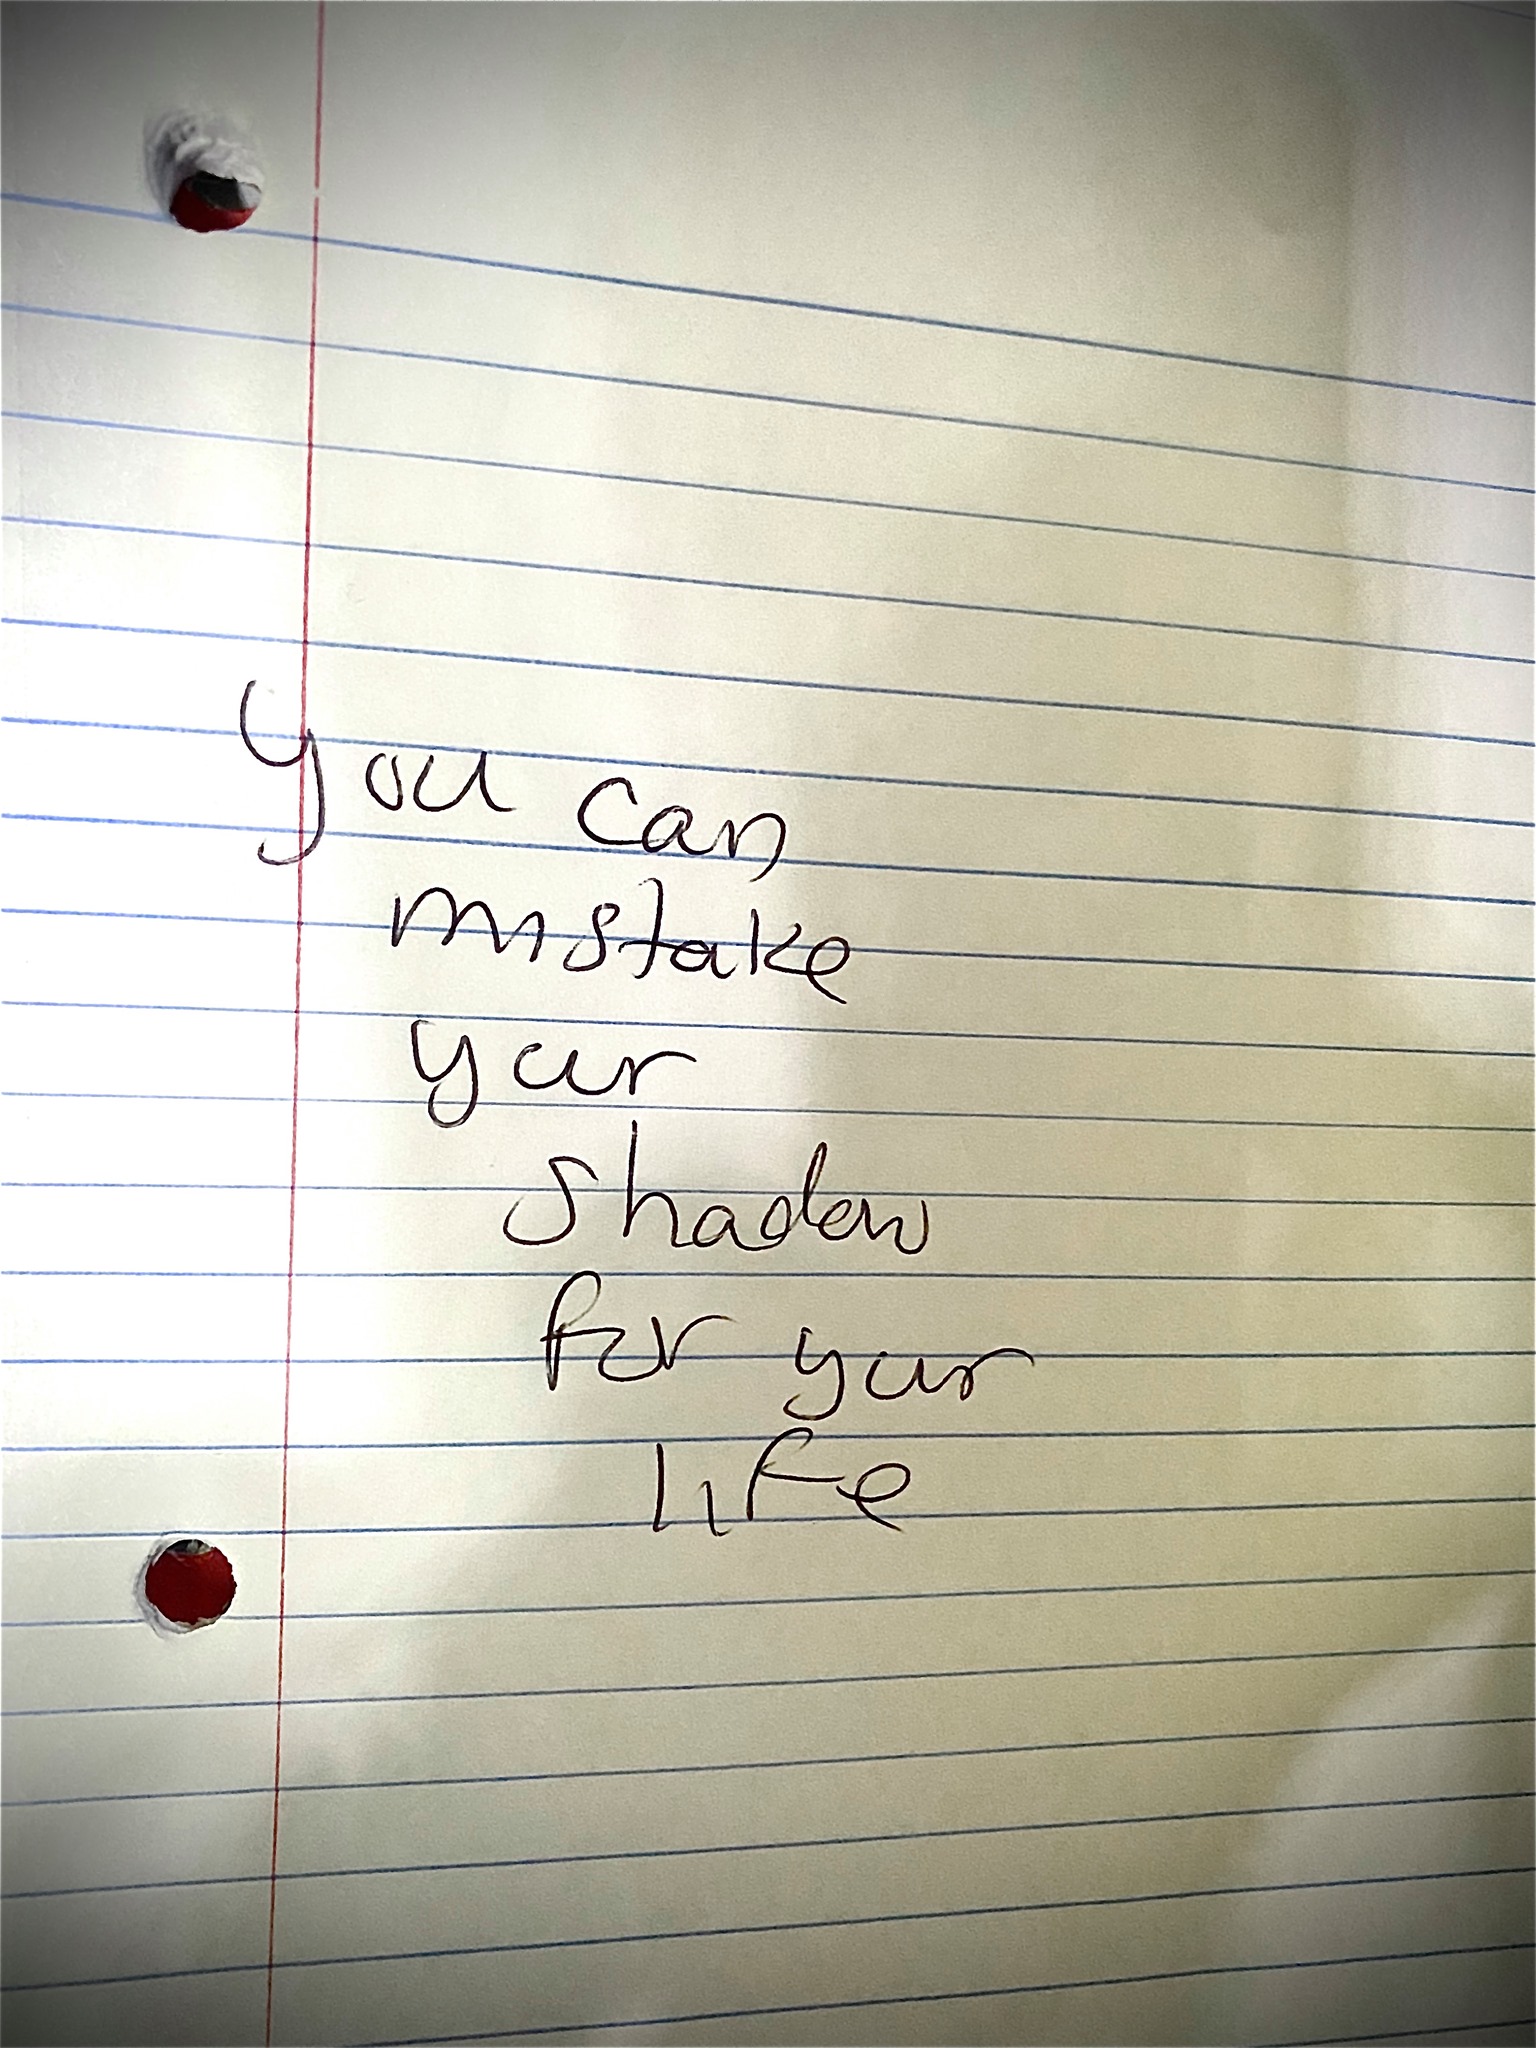 You can
mistake
your
shadow
for your
life